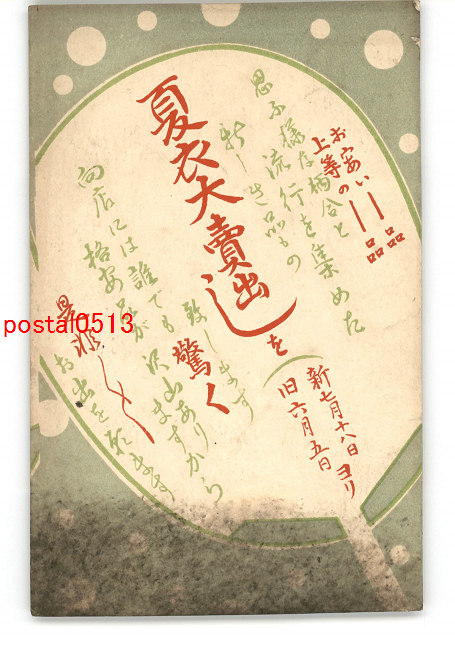 お安い——品
上等の——品
思ふ様な柄合と
流行を集めた
新しき品もの
夏衣大賣出しを
致します
(新七月十八日ヨリ
旧六月五日
向店には誰でも驚く
格安品が沢山ありますから
是非〱お出を願ます
postal0513